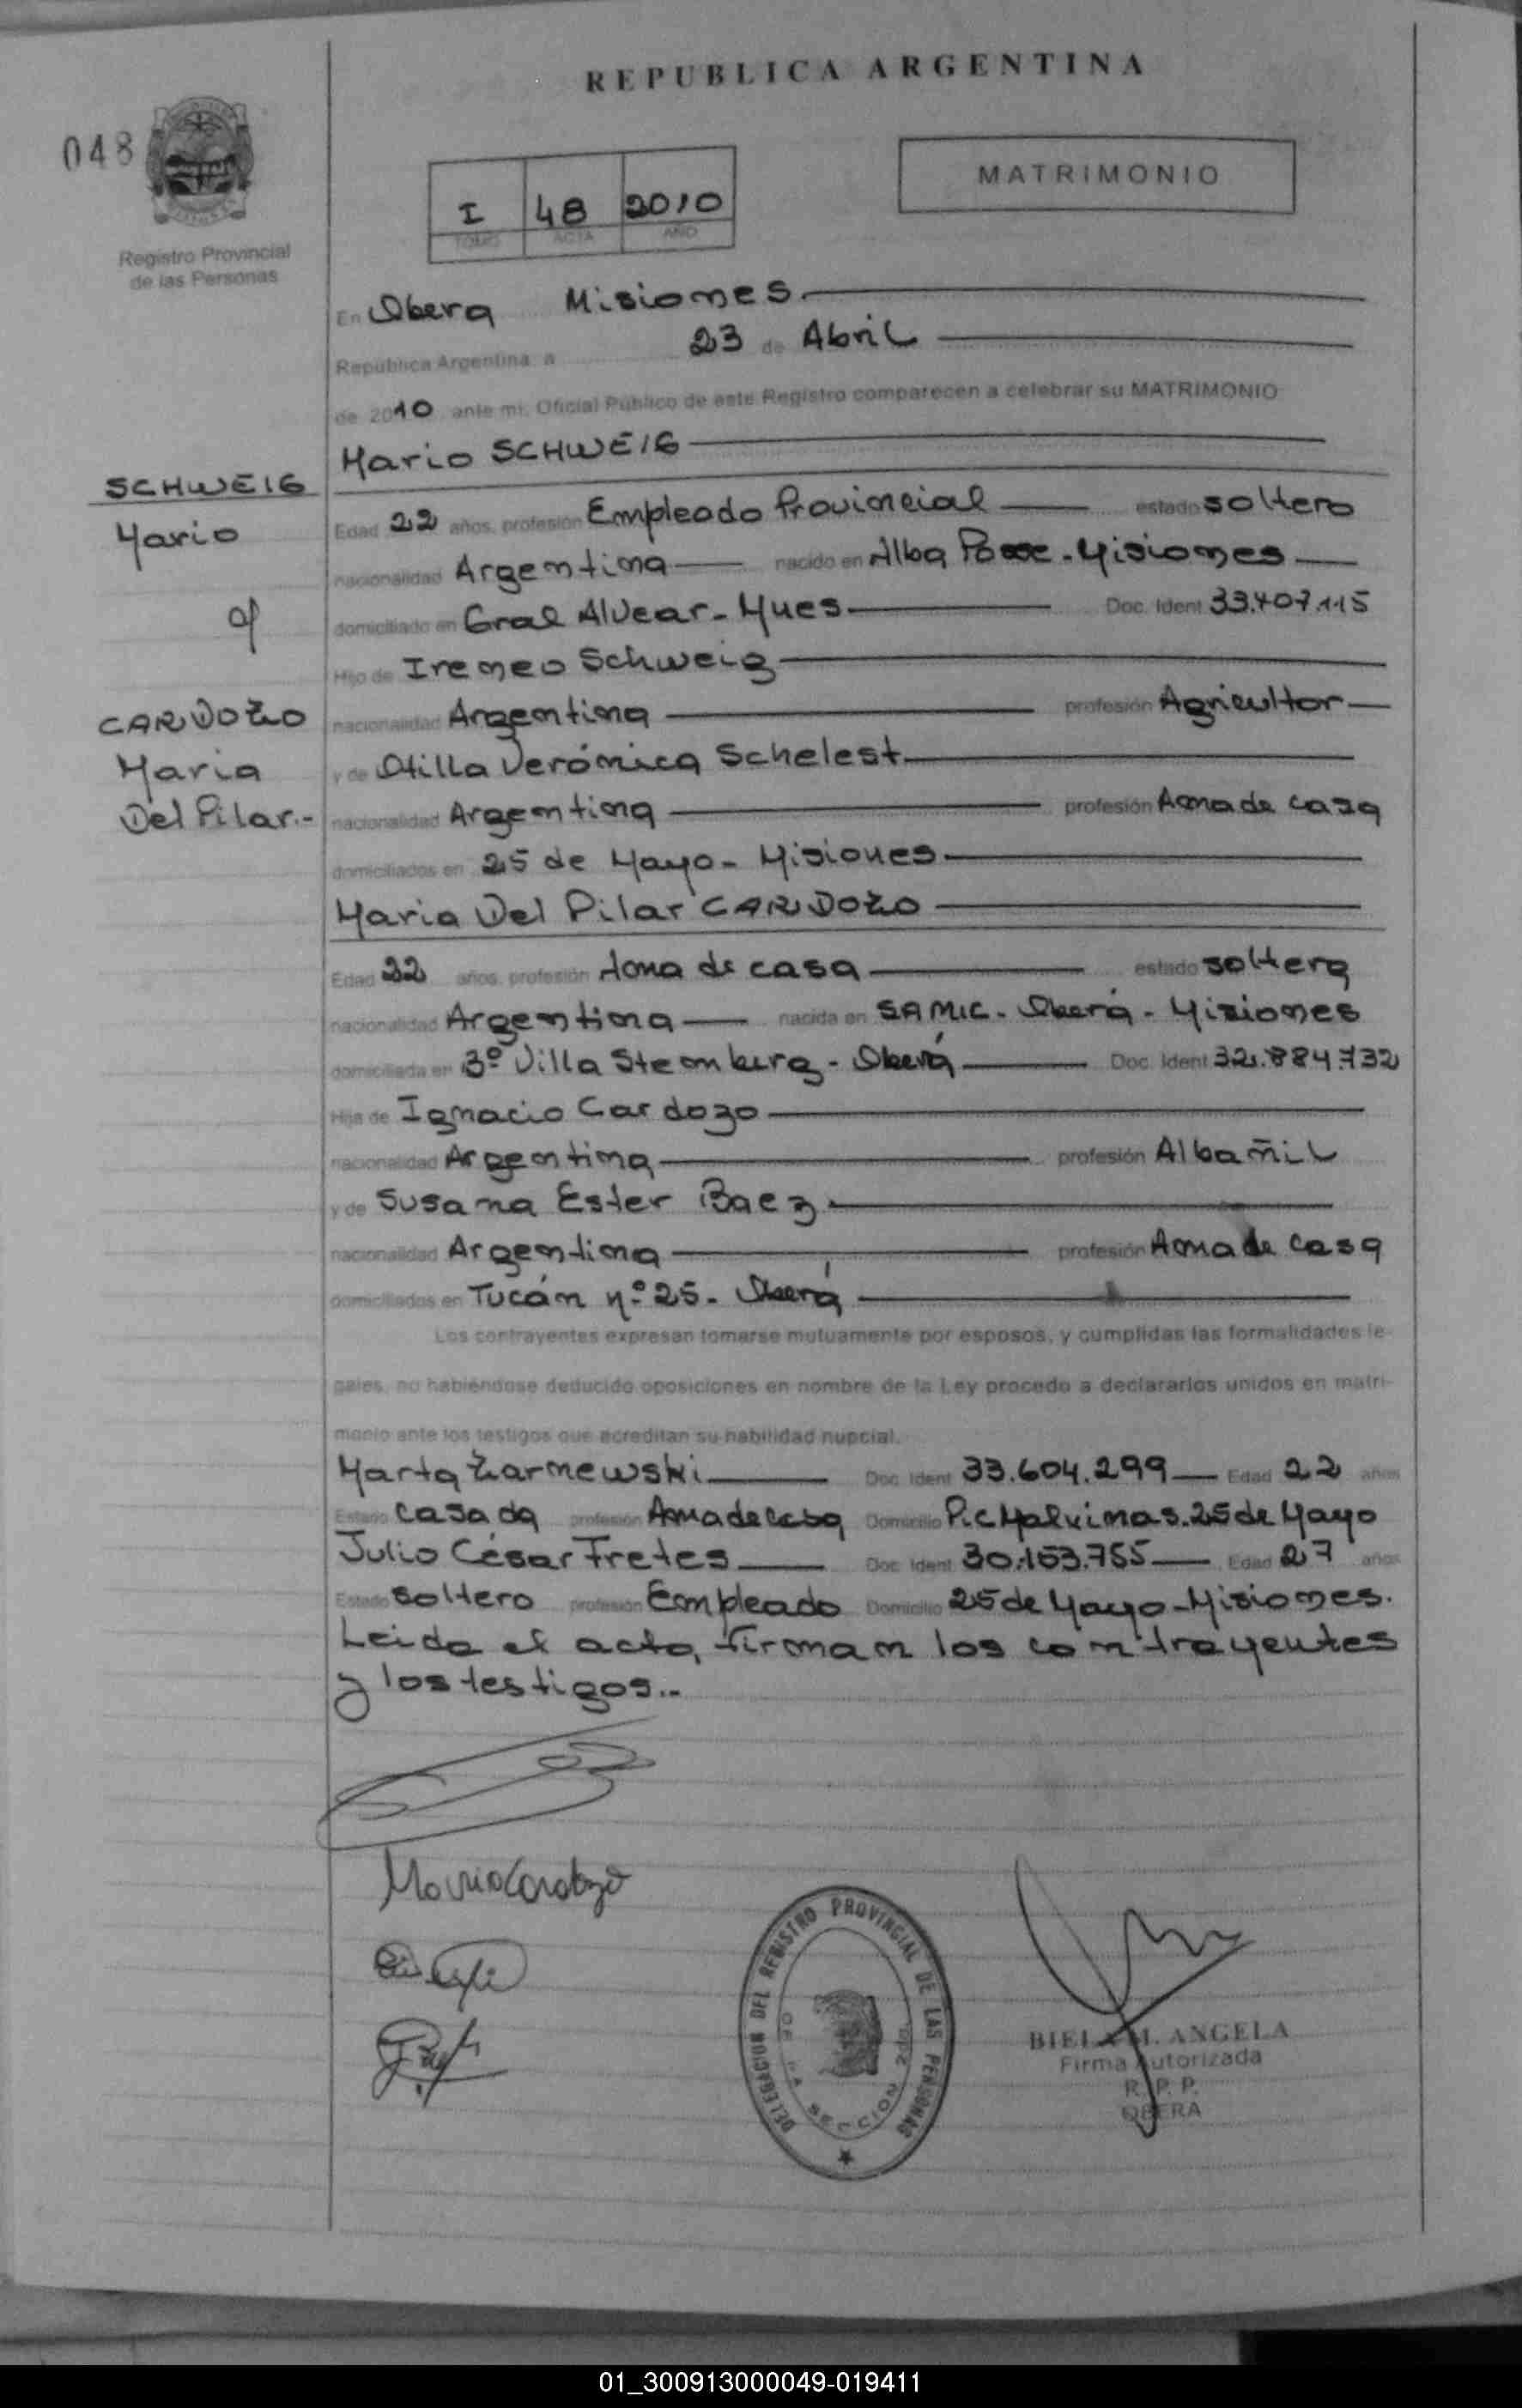 REPUBLICA ARGENTINA
048
MATRIMONIO
I 48 2010
TOMO ACTA AÑO
Registro Provincial
de las Personas
En Oberá Misiones
República Argentina, a 23 de Abril
de 2010 ante mí, Oficial Público de este Registro comparecen a celebrar su MATRIMONIO
Mario SCHWEIG
SCHWEIG
Mario
Edad 22 años, profesión Empleado Provincial estado soltero
nacionalidad Argentina nacido en Alba Posse - Misiones
domiciliado en Gral Alvear - Mnes Doc. Ident 33.407.115
Hijo de Ireneo Schweig
CARDOZO
Maria
Del Pilar.-
nacionalidad Argentina profesión Agricultor
y de Otilla Verónica Schelest
nacionalidad Argentina profesión Ama de casa
domiciliados en 25 de Mayo - Misiones
Maria Del Pilar CARDOZO
Edad 22 años, profesión Ama de casa estado soltera
nacionalidad Argentina nacida en SAMIC - Oberá - Misiones
domiciliada en 3º Villa Stemberg - Oberá Doc. Ident 32.884.732
Hija de Ignacio Cardozo
nacionalidad Argentina profesión Albañil
y de Susana Ester Baez
nacionalidad Argentina profesión Ama de casa
domiciliados en Tucán nº 25 - Oberá
Los contrayentes expresan tomarse mutuamente por esposos, y cumplidas las formalidades le-
gales, no habiéndose deducido oposiciones en nombre de la Ley procedo a declararlos unidos en matri-
monio ante los testigos que acreditan su habilidad nupcial.
Marta Zarnewski Doc. Ident 33.604.299 Edad 22 años
Estado casada profesión Ama de casa Domicilio Pic Malvinas. 25 de Mayo
Julio César Fretes Doc. Ident 30.153.755 Edad 27 años
Estado soltero profesión Empleado Domicilio 25 de Mayo - Misiones.
Leida el acta, firman los contrayentes
y los testigos..-
Maria Cardozo
DELEGACION DEL REGISTRO PROVINCIAL DE LAS PERSONAS
DE LA SECCION 2da.
BIELA M. ANGELA
Firma Autorizada
R. P. P.
OBERA
01_300913000049-019411